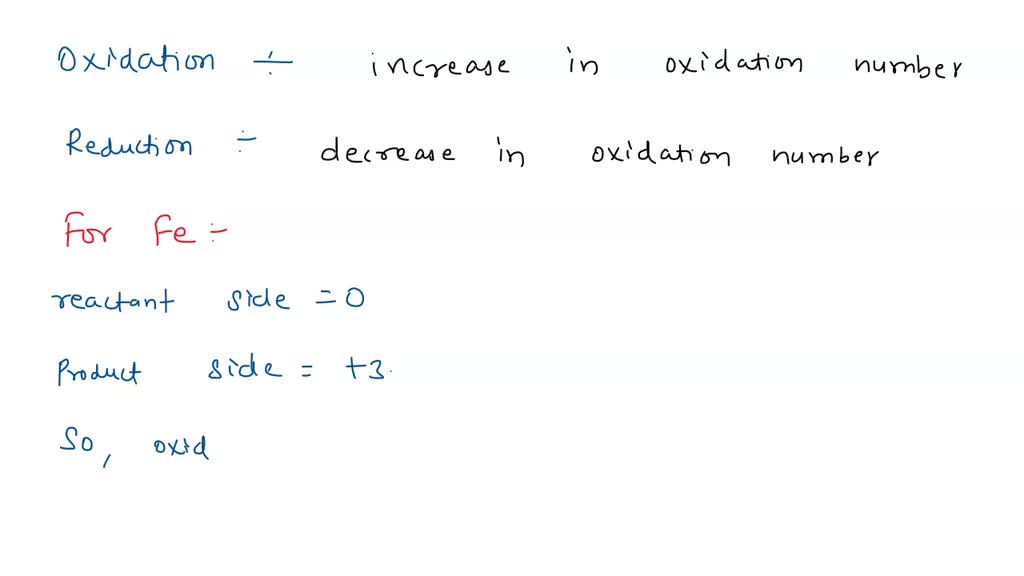 Oxidation ÷ increase in oxidation number
Reduction ÷ decrease in oxidation number
For Fe ÷
reactant side = 0
Product side = +3
So, oxid